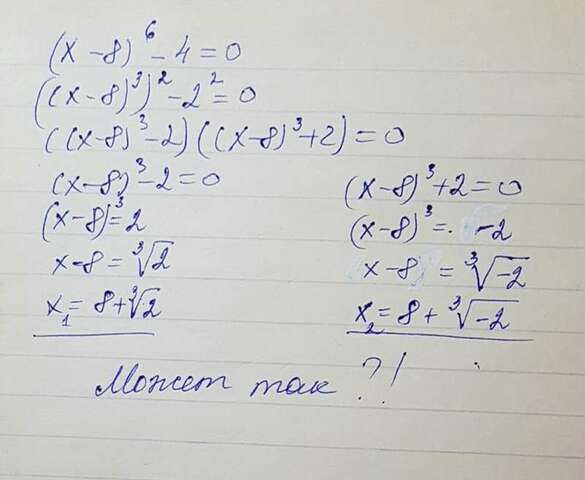 (x-8)⁶-4=0
((x-8)³)²-2²=0
((x-8)³-2)((x-8)³+2)=0
(x-8)³-2=0
(x-8)³=2
x-8=∛2
x₁=8+∛2
(x-8)³+2=0
(x-8)³=. -2
x-8=∛-2
x₂=8+∛-2
Может так ?!